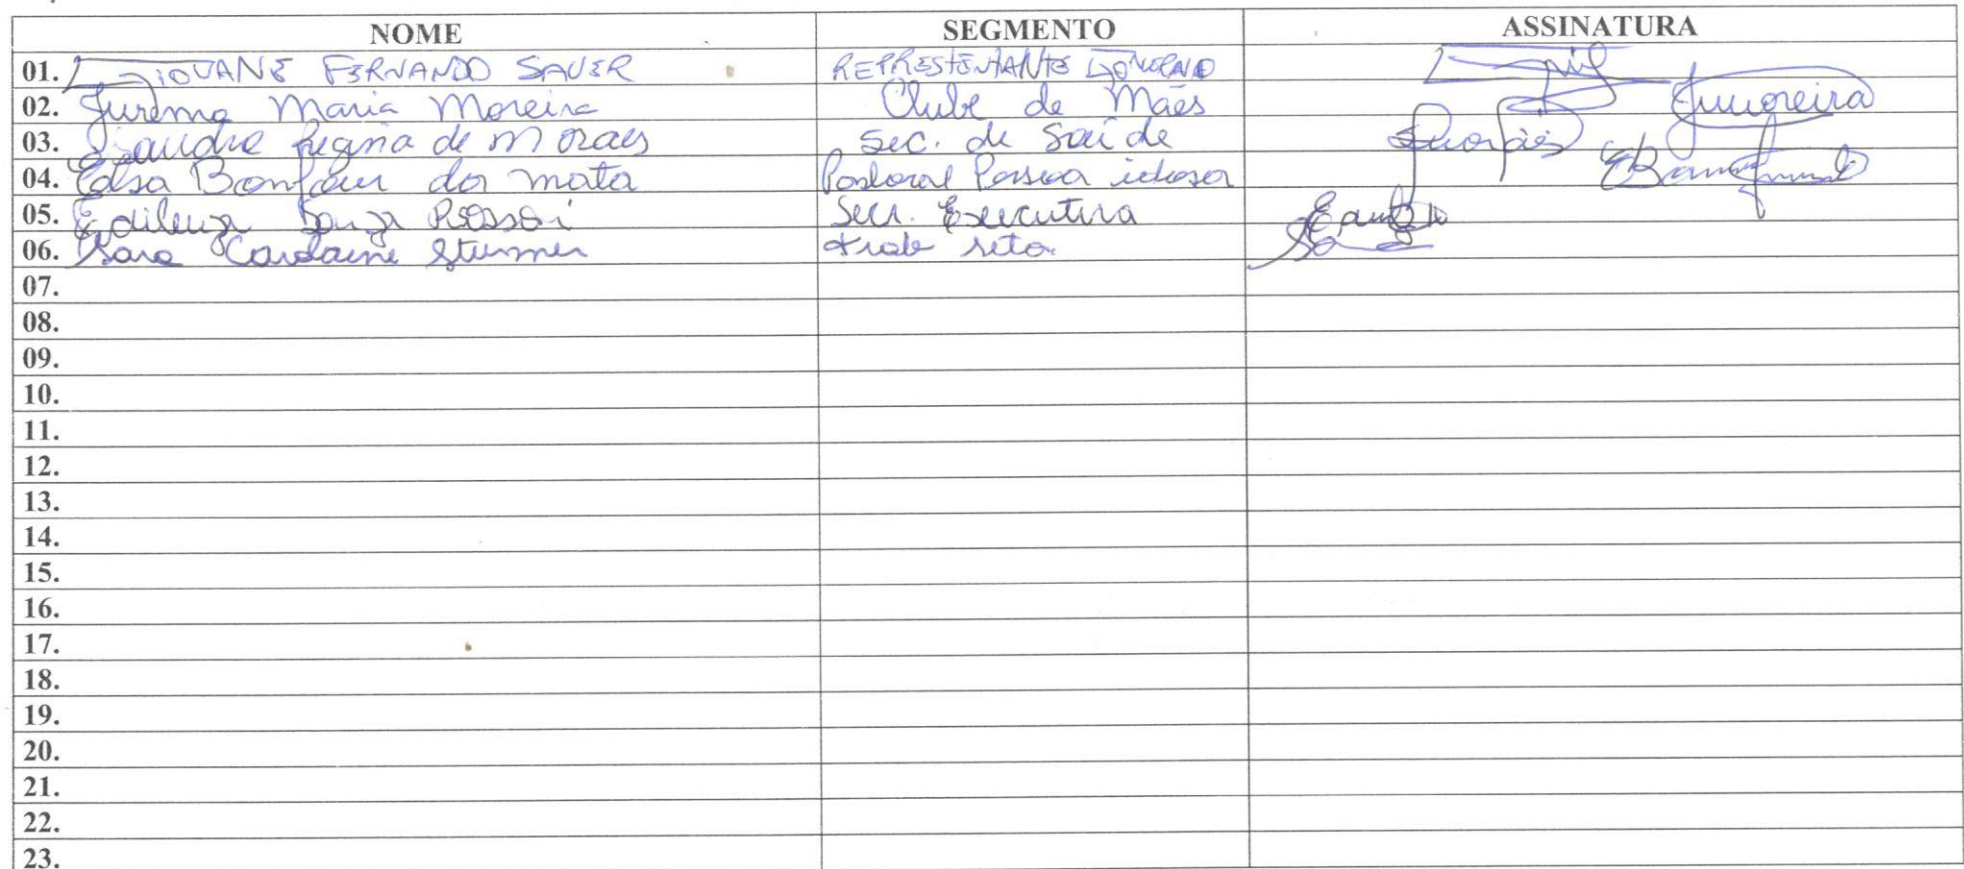 NOME SEGMENTO ASSINATURA
01. GIOVANE FERNANDO SAUER REPRESENTANTE GOVERNO
02. Jurema Maria Moreira Clube de Mães Jmmoreira
03. Sandra Regina de Moraes Sec. de Saúde
04. Elsa Bonfim da mata Pastoral Pessoa idosa
05. Edileuza Souza Rossoni Secr. Executiva
06. Sara Carolaine Sturmer
07.
08.
09.
10.
11.
12.
13.
14.
15.
16.
17.
18.
19.
20.
21.
22.
23.